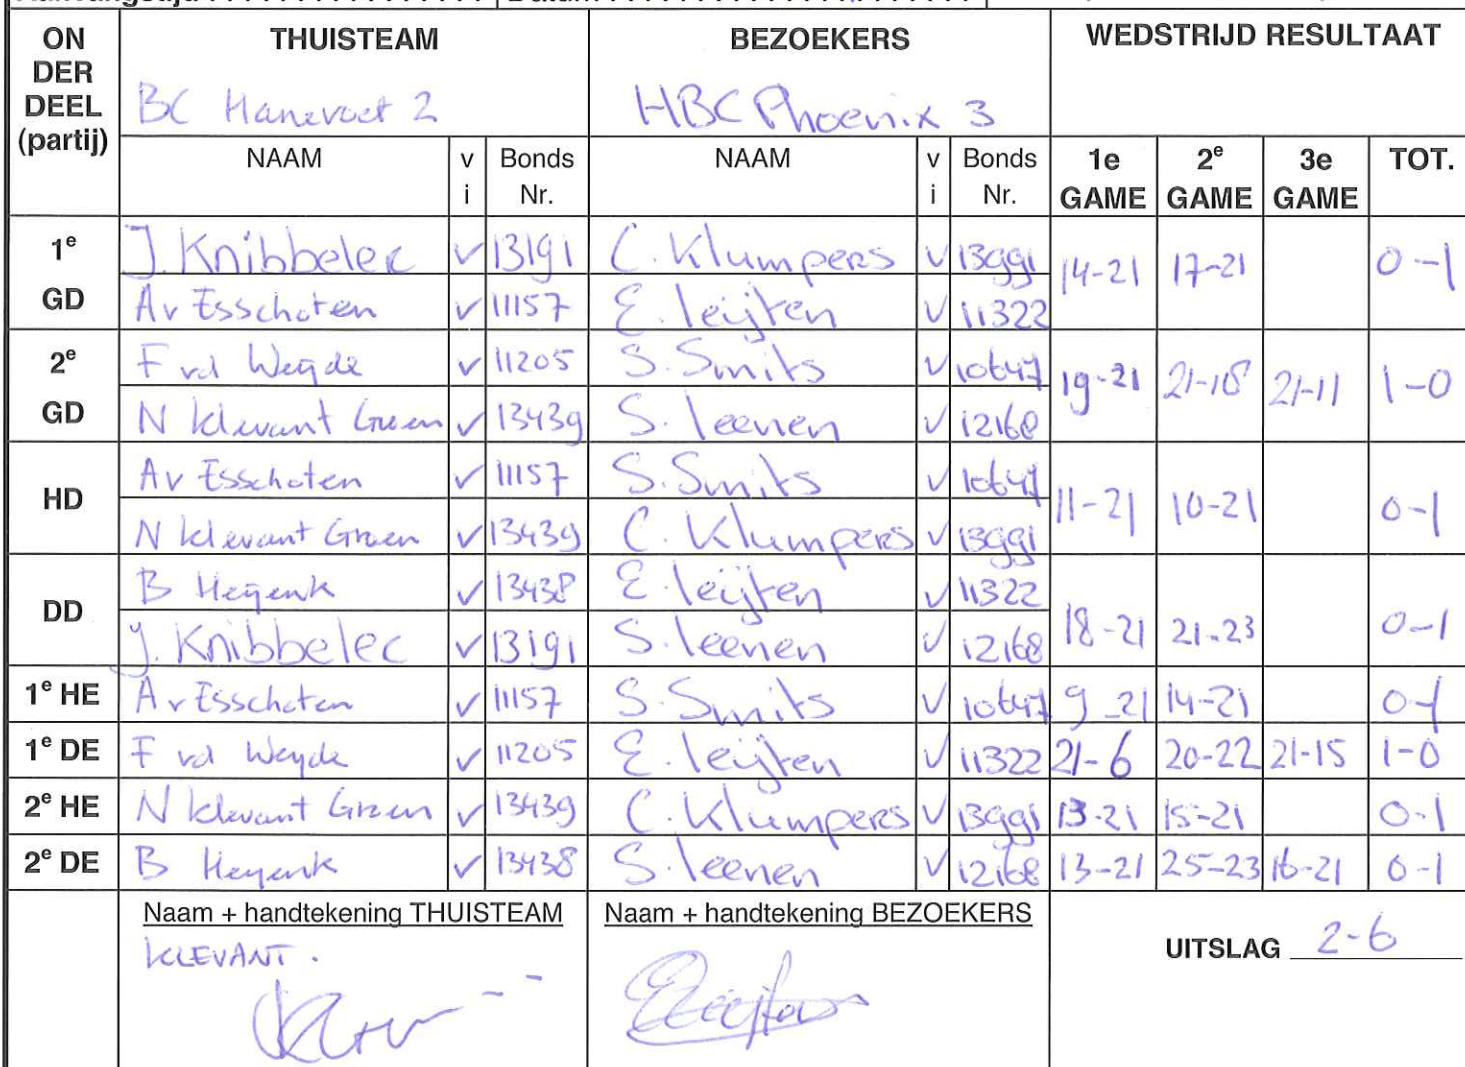 ON DER DEEL (partij) THUISTEAM BEZOEKERS WEDSTRIJD RESULTAAT
BC Hanevoet 2 HBC Phoenix 3
NAAM v i Bonds Nr. NAAM v i Bonds Nr. 1e GAME 2e GAME 3e GAME TOT.
1e GD J. Knibbeler v 13191 C. Klumpers v 13991 14-21 17-21 0-1
A v Esschoten v 11157 E. leijten v 11322
2e GD F vd Weijde v 11205 S. Smits v 10647 19-21 21-18 21-11 1-0
N klevant Groen v 13439 S. leenen v 12168
HD A v Esschoten v 11157 S. Smits v 10647 11-21 10-21 0-1
N klevant Groen v 13439 C. Klumpers v 13991
DD B Heijenk v 13438 E. leijten v 11322 18-21 21-23 0-1
J. Knibbeler v 13191 S. leenen v 12168
1e HE A v Esschoten v 11157 S. Smits v 10647 9-21 14-21 0-1
1e DE F vd Weyde v 11205 E. leijten v 11322 21-6 20-22 21-15 1-0
2e HE N klevant Groen v 13439 C. Klumpers v 13991 13-21 15-21 0-1
2e DE B Heyenk v 13438 S. leenen v 12168 13-21 25-23 16-21 0-1
Naam + handtekening THUISTEAM Naam + handtekening BEZOEKERS
KLEVANT.
UITSLAG 2-6